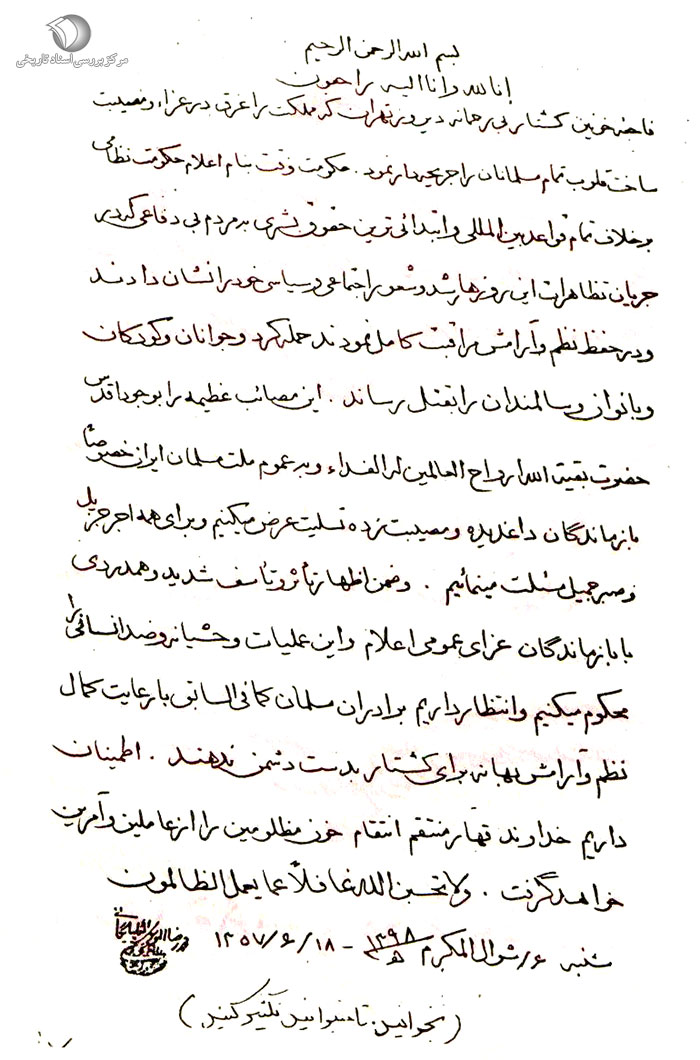 مرکز بررسی اسناد تاریخی
بسم الله الرحمن الرحیم
انا لله وانا الیه راجعون
فاجعه خونین کشتار بی رحمانه دیروز تهران که مملکت را غرق در عزاء ومصیبت
ساخت قلوب تمام مسلمانان را جریحه دار نمود . حکومت وقت بنام اعلام حکومت نظامی
برخلاف تمام قواعد بین المللی و ابتدائی ترین حقوق بشری به مردم بی دفاعی که در
جریان تظاهرات این روزها رشد و شعور اجتماعی و سیاسی خود را نشان دادند
و در حفظ نظم و آرامش مراقبت کامل نمودند حمله کرد و جوانان و کودکان
و بانوان و سالمندان را بقتل رساند . این مصائب عظیمه را بوجود اقدس
حضرت بقیة الله ارواح العالمین له الفداء و به عموم ملت مسلمان ایران خصوصاً
بازماندگان داغدیده و مصیبت زده تسلیت عرض میکنیم و برای همه اجر جزیل
و صبر جمیل مسئلت مینمائیم . و ضمن اظهار تأثر و تأسف شدید و همدردی
با بازماندگان عزای عمومی اعلام و این عملیات وحشیانه و ضد انسانی را
محکوم میکنیم و انتظار داریم برادران مسلمان کما فی السابق با رعایت کمال
نظم و آرامش بهانه برای کشتار بدست دشمن ندهند . اطمینان
داریم خداوند قهار منتقم انتقام خون مظلومین را از عاملین و آمرین
خواهد گرفت . ولا تحسبن الله غافلاً عما یعمل الظالمون
شنبه ۶/ شوال المکرم ۱۳۹۸ - ۱۳۵۷/۶/۱۸
(بخوانید، تا میتوانید تکثیر کنید)